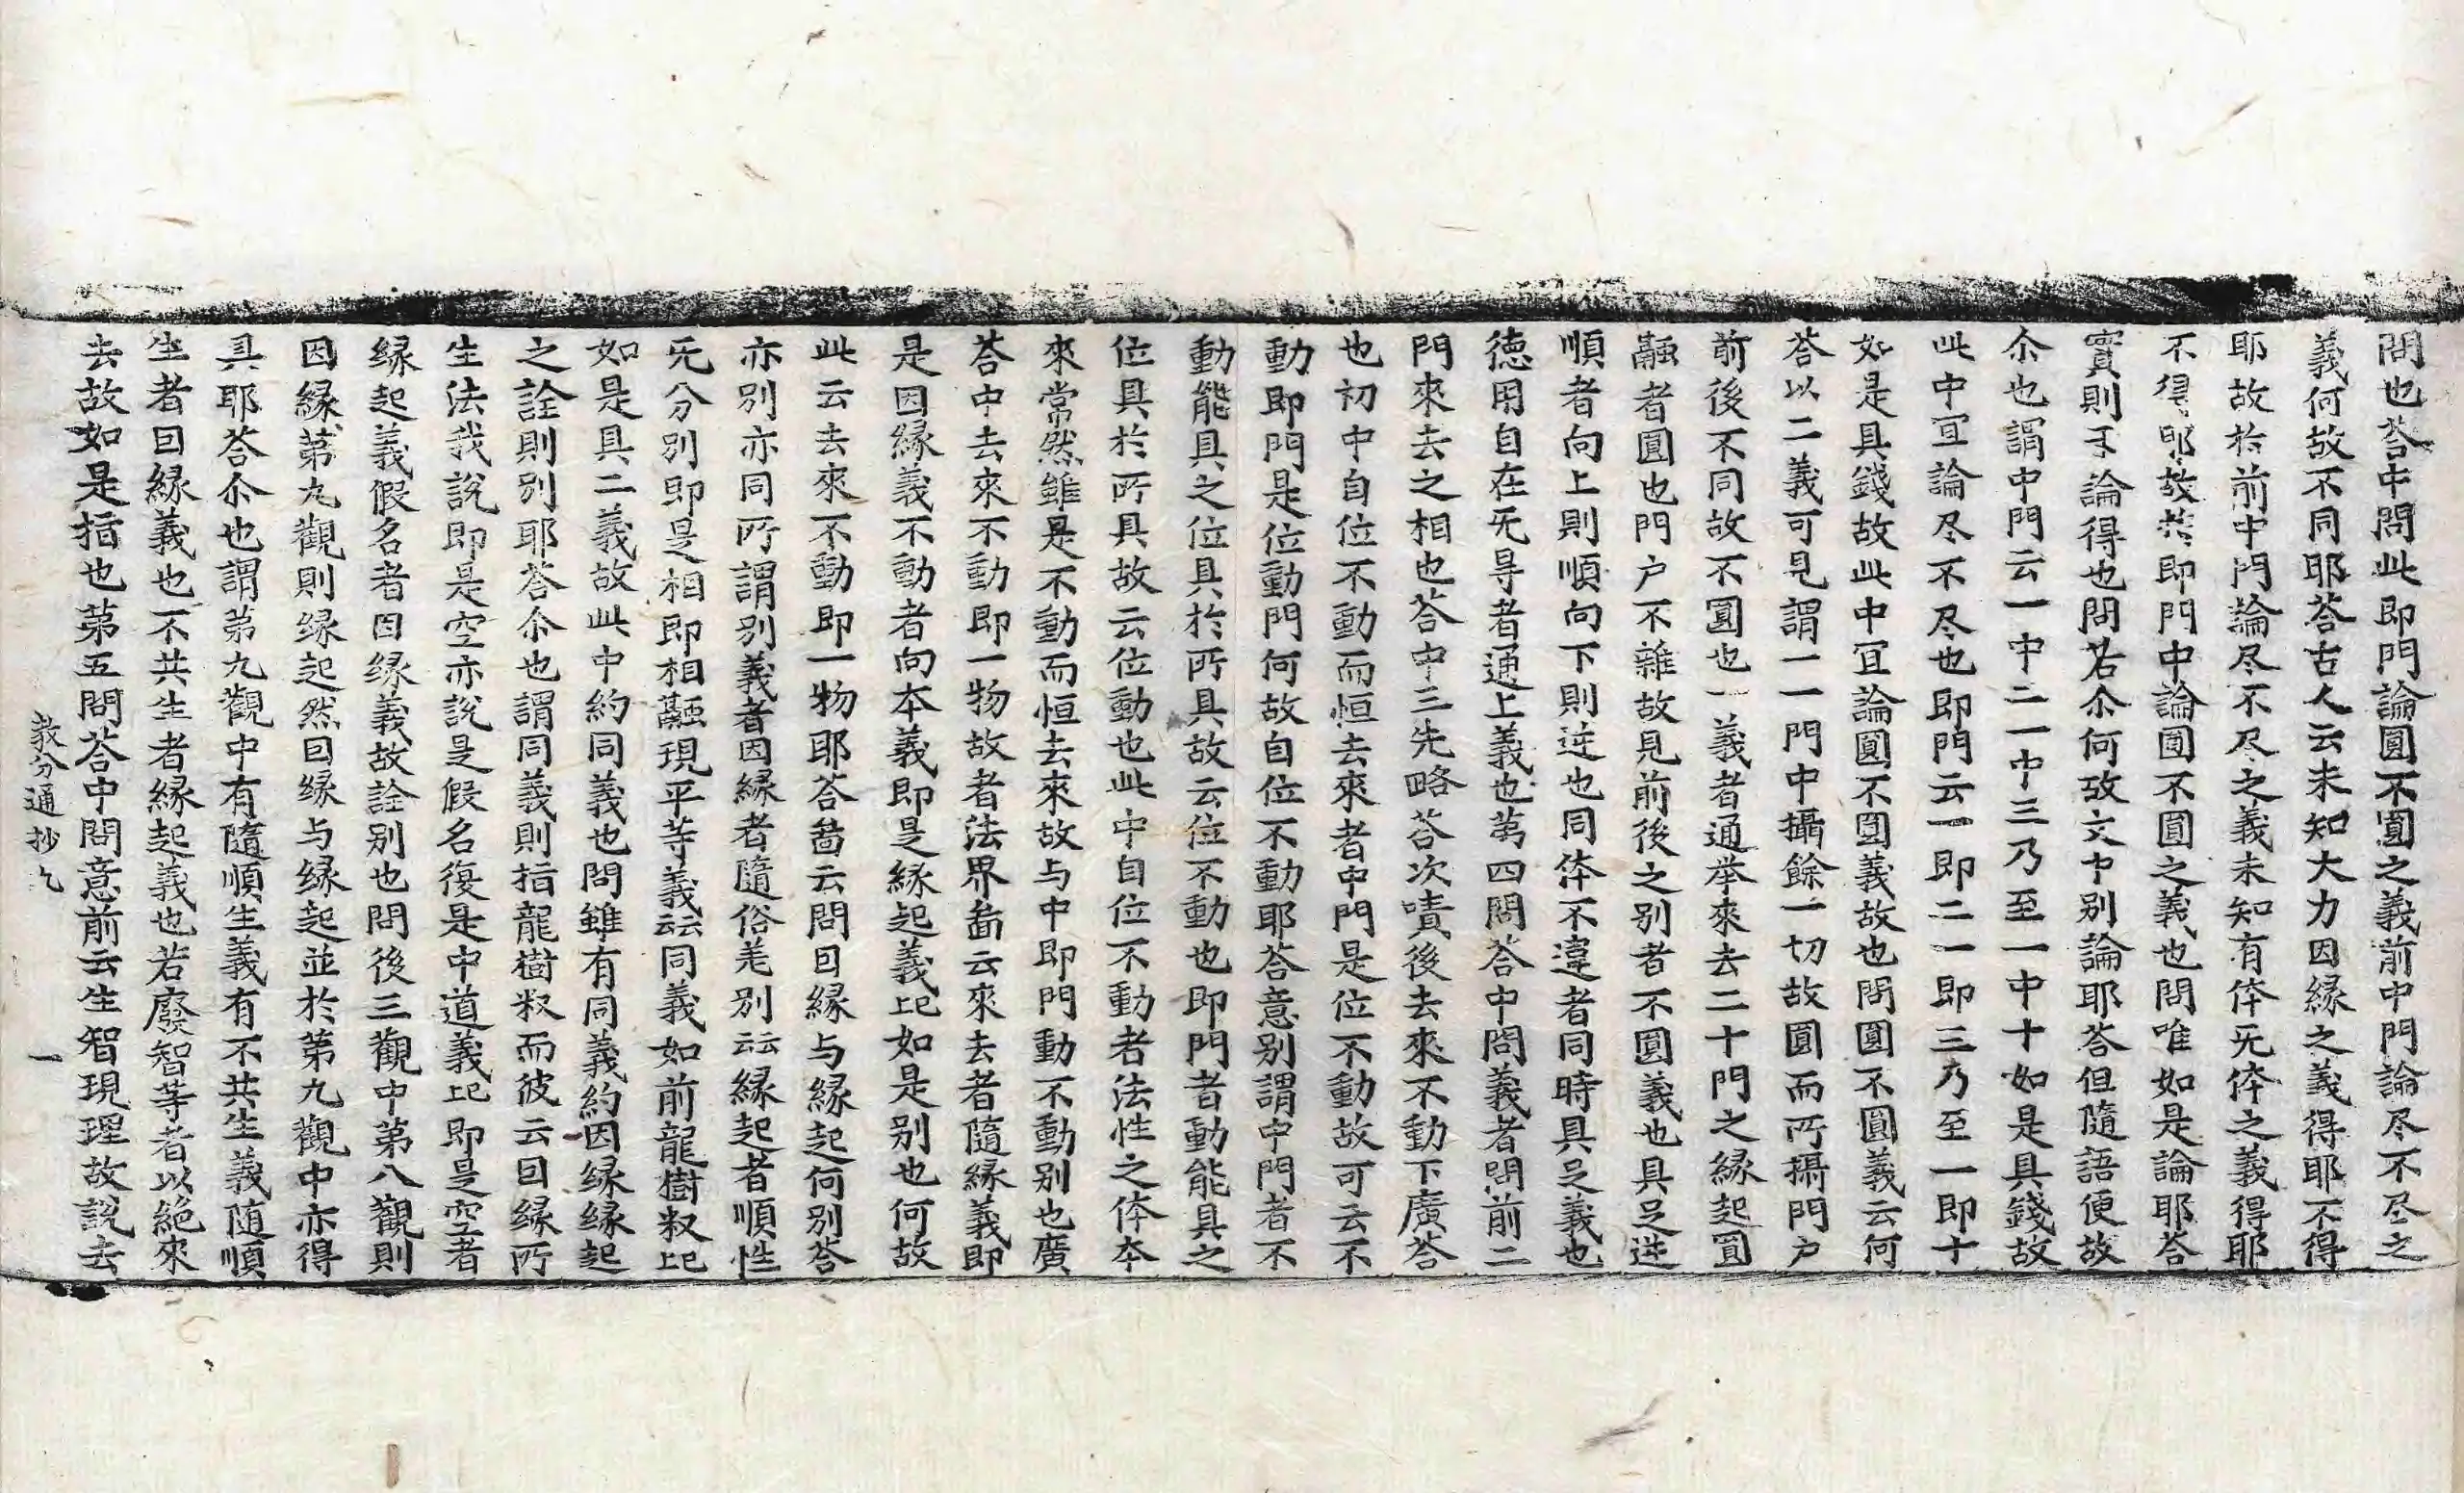 問也荅中問此即門論圓不圓之義前中門論尽不尽之
義何故不同耶荅古人云未知大力因縁之義得耶不得
耶故於前中門論尽不尽之義未知有体旡体之義得耶
不得耶故於即門中論圓不圓之義也問唯如是論耶荅
實則予論得也問若尒何故文中别論耶荅但隨語便故
尒也謂中門云一中二一中三乃至一中十如是具錢故
此中宜論尽不尽也即門云一即二一即三乃至一即十
如是具錢故此中宜論圓不圓義故也問圓不圓義云何
荅以二義可見謂一一門中攝餘一切故圓而所攝門户
前後不同故不圓也一義者通举來去二十門之縁起圓
融者圓也門户不雜故見前後之别者不圓義也具足逆
順者向上則順向下則逆也同体不違者同時具足義也
徳用自在旡㝵者通上義也第四問荅中問義者問前二
門來去之相也荅中三先略荅次嘖後去來不動下廣荅
也初中自位不動而恒去來者中門是位不動故可云不
動即門是位動門何故自位不動耶荅意别謂中門者不
動能具之位具於所具故云位不動也即門者動能具之
位具於所具故云位動也此中自位不動者法性之体本
來常然雖是不動而恒去來故与中即門動不動别也廣
荅中去來不動即一物故者法界啚云來去者隨縁義即
是因縁義不動者向本義即是縁起義比如是别也何故
此云去來不動即一物耶荅啚云問因縁与縁起何别荅
亦别亦同所謂别義者因縁者隨俗差别云云縁起者順性
旡分别即是相即相融現平等義云云同義如前龍樹叙比
如是具二義故此中約同義也問雖有同義約因縁縁起
之詮則别耶荅尒也謂同義則指龍樹叙而彼云因縁所
生法我說即是空亦說是假名復是中道義比即是空者
縁起義假名者因縁義故詮别也問後三觀中第八觀則
因縁第九觀則縁起然因縁与縁起並於第九觀中亦得
具耶荅尒也謂第九觀中有隨順生義有不共生義随順
生者因縁義也不共生者縁起義也若廢智等者以絶來
去故如是指也第五問荅中問意前云生智現理故說去
教分通抄　一